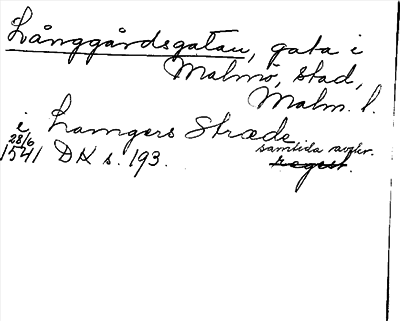 Långgårdsgatan, gata i
Malmö, stad,
Malm. l.
i Lamgers Stræde
28/6
1541 DK s. 193. samtida avskr.
regest.